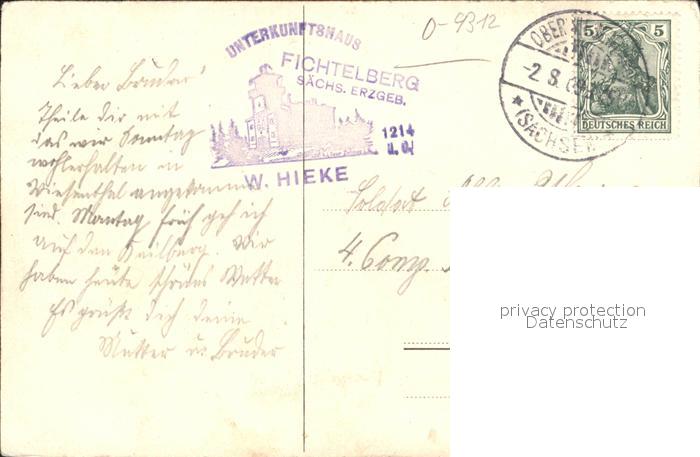 O-9312
UNTERKUNFTSHAUS
FICHTELBERG
SÄCHS. ERZGEB.
1214
ü. d/
W. HIEKE
OBER
-2.8.09
*(SACHSEN)
5 5
DEUTSCHES REICH
Lieber Bruder!
Theile dir mit
das wir Sonntag
wohlerhalten in
Wiesenthal angekommen
sind. Montag früh geh ich
auf den Keilberg. Wir
haben heute schönes Wetter
Es grüßt dich deine
Mutter u. Bruder
Soldat
4. Comp.
privacy protection
Datenschutz